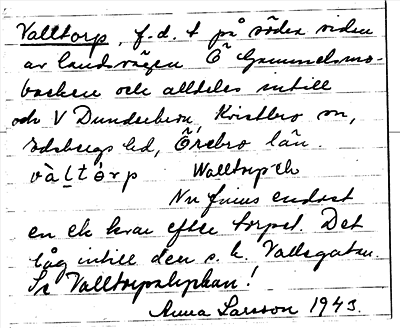 Valltorp, f.d. t på södra sidan
av landsvägen Ö Gammelsmo-
backen och alldeles intill
och V Dunderbern, Kvistbro sn,
Edsbergs hd, Örebro län.
Walltorp-ek
Nu finns endast
en ek kvar efter torpet. Det
låg intill den s. k. Vallsgatan.
Se Valltorpslyckan!
Anna Larsson 1943.